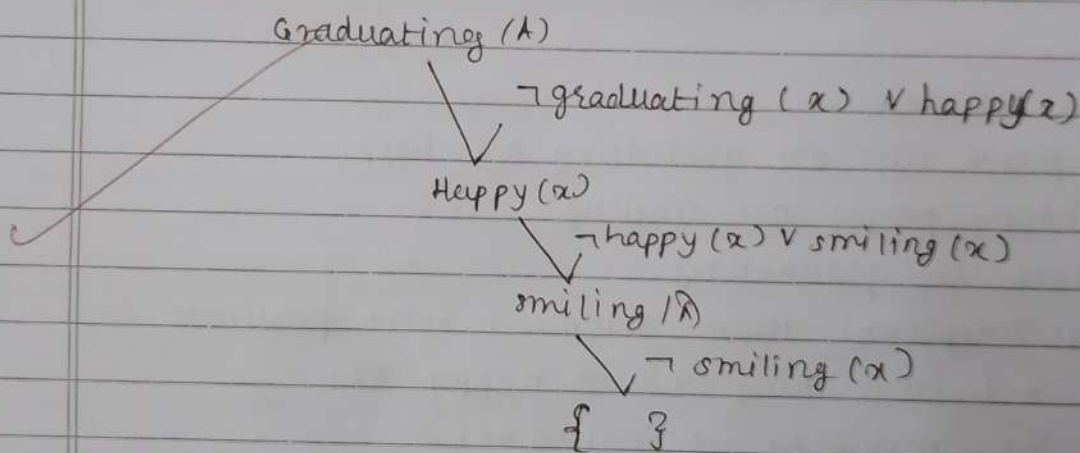 Graduating (A)
¬graduating (x) ∨ happy(x)
Happy (x)
¬happy (x) ∨ smiling (x)
smiling
¬ smiling (x)
{ }